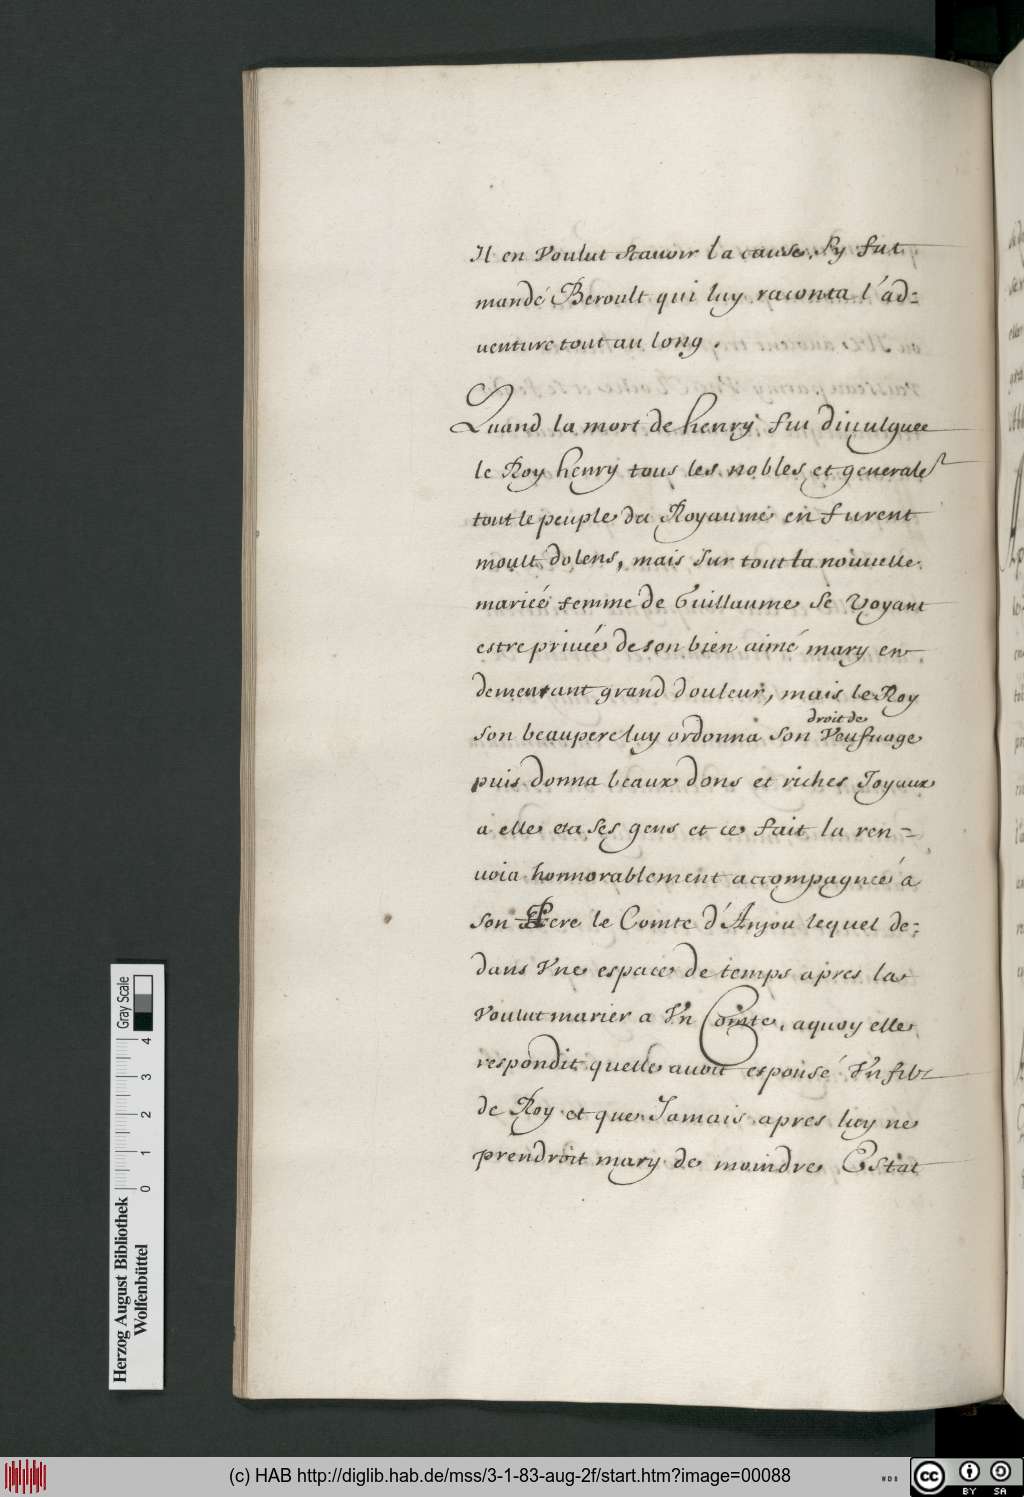 Il en Voulut Scauoir la cause, Sy fut
mandé Beroult qui luy raconta l'ad=
uenture tout au long.
Quand la mort de henry fut diuulguee
le Roy henry tous les nobles et generale
tout le peuple du Royaume en furent
moult dolens, mais sur tout la nouuelle
mariée femme de Guillaume se Voyant
estre priuée de son bien aimé mary en
dementant grand douleur, mais le Roy
droit de
son beaupere luy ordonna son Veufuage
puis donna beaux dons et riches Joyaux
a elle eta ses gens et ce fait la ren=
uoia honnorablement accompagnée á
son Pere le Comte d'Anjou lequel de=
dans Vne espace de temps apres la
Voulut marier a Vn Comte, aquoy elle
respondit quelle auoit espousé Vn filz
de Roy et que Jamais apres luy ne
prendroit mary de moindre Estat
Gray Scale
4
3
2
1
0
Herzog August Bibliothek
Wolfenbüttel
(c) HAB http://diglib.hab.de/mss/3-1-83-aug-2f/start.htm?image=00088
WDB
cc
BY SA